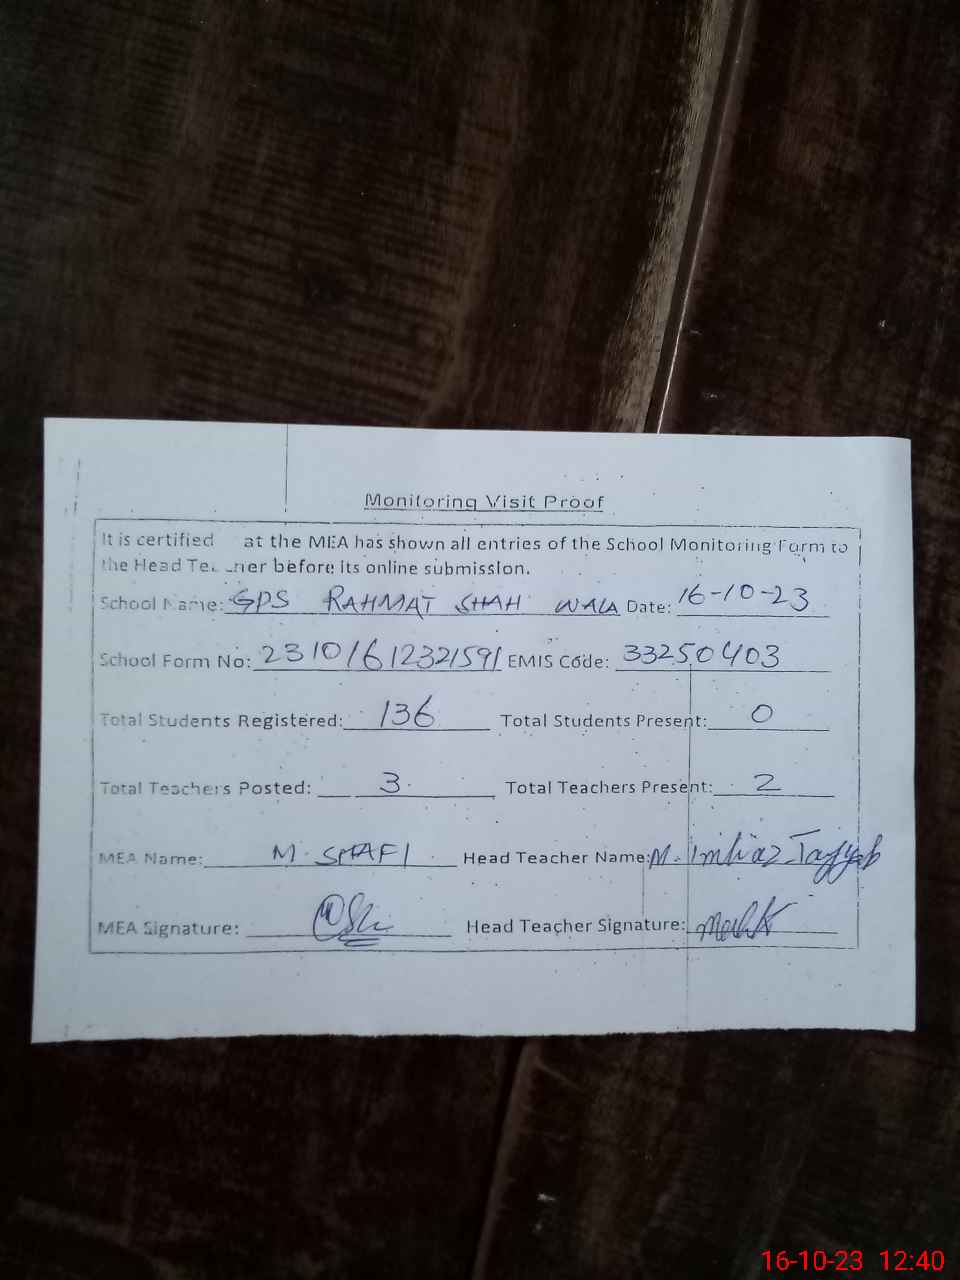 Monitoring Visit Proof
It is certified at the MEA has shown all entries of the School Monitoring Form to
the Head Te. ner before its online submission.
School Name: GPS RAHMAT SHAH WALA Date: 16-10-23
School Form No: 23101612321591 EMIS Code: 33250403
Total Students Registered: 136 Total Students Present: 0
Total Teachers Posted: 3 Total Teachers Present: 2
MEA Name: M. SHAFI Head Teacher Name: M. Imtiaz Tayyab
MEA Signature: Head Teacher Signature:
16-10-23 12:40